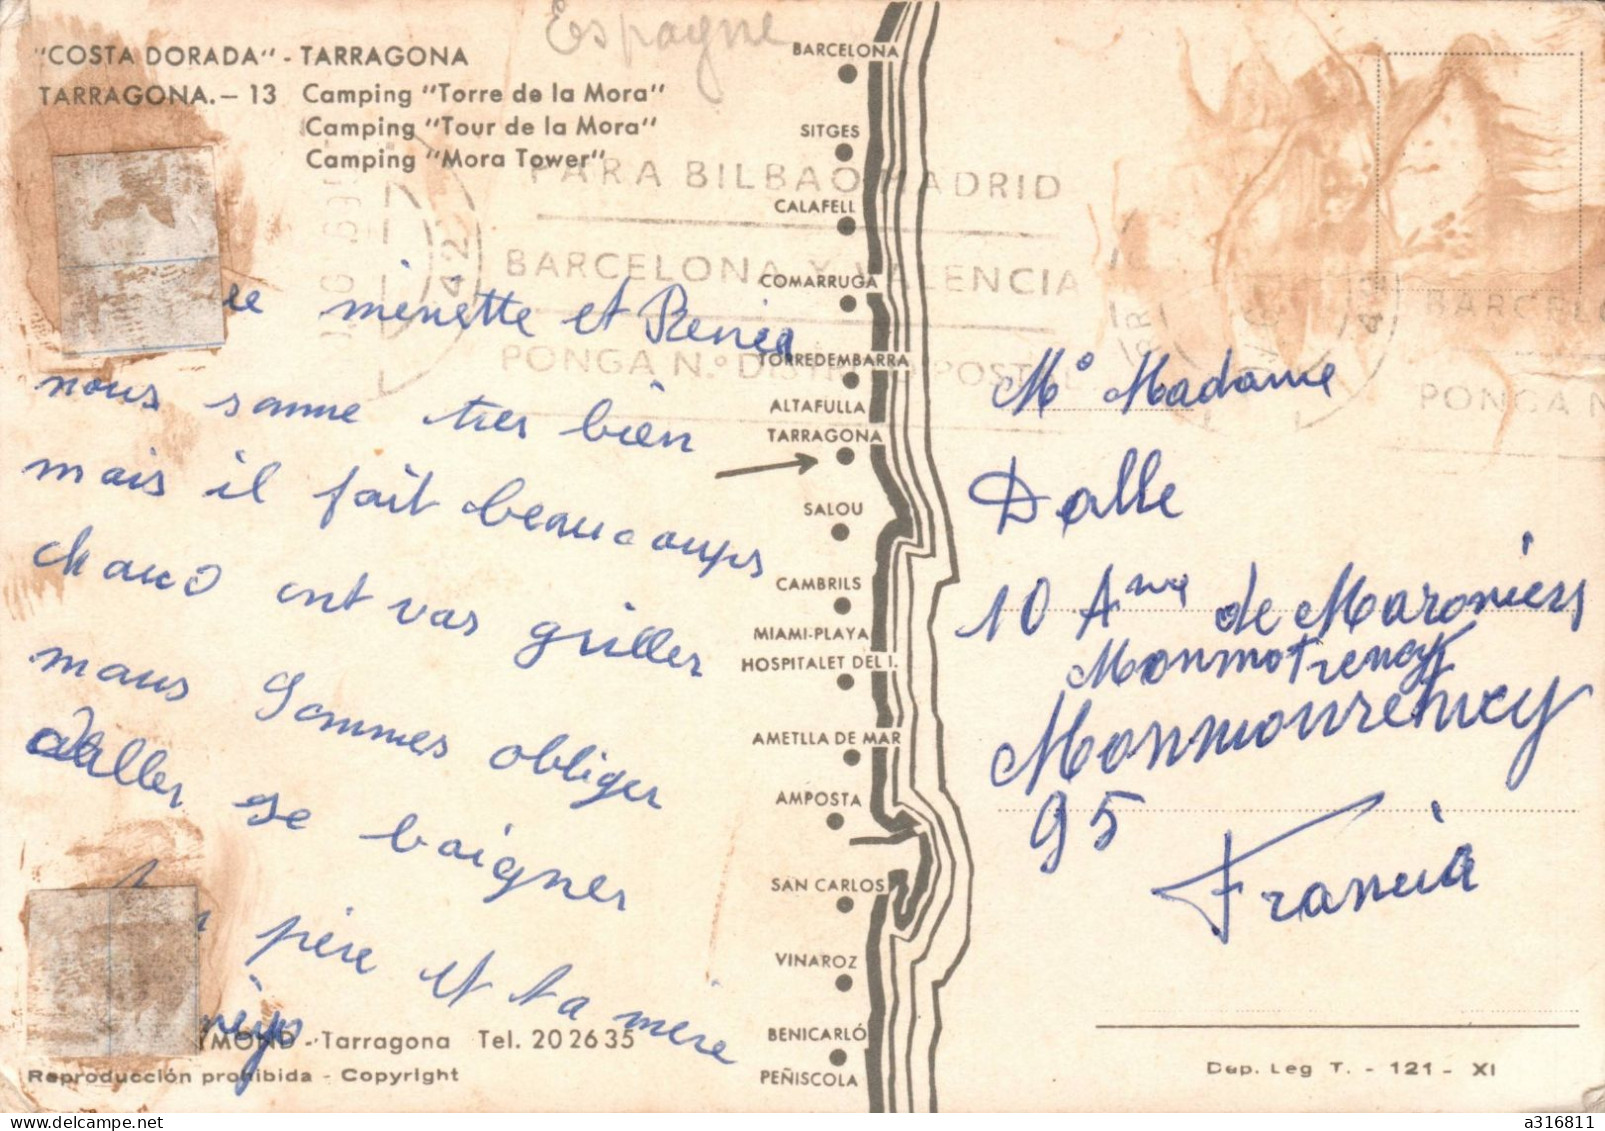 Espagne
"COSTA DORADA" - TARRAGONA
TARRAGONA. - 13 Camping "Torre de la Mora"
Camping "Tour de la Mora"
Camping "Mora Tower"
PARA BILBAO MADRID
BARCELONA Y VALENCIA
PONGA N.º DISTRITO POSTAL
ee minette et Renée
nous somme tres bien
mais il fait beaucoups
chaud ont vas griller
maus sommes obliger
daller se baigner
père et ta mère
MOND - Tarragona Tel. 20 26 35
Reproducción prohibida - Copyright
BARCELONA
SITGES
CALAFELL
COMARRUGA
TORREDEMBARRA
ALTAFULLA
TARRAGONA
SALOU
CAMBRILS
MIAMI-PLAYA
HOSPITALET DEL I.
AMETLLA DE MAR
AMPOSTA
SAN CARLOS
VINAROZ
BENICARLÓ
PEÑISCOLA
BARCELO
PONGA N
Mº Madame
Dalle
10 Anue de Maroniers
Monmotrency
Monmourency
95
Francia
Dep. Leg T. - 121 - XI
a316811